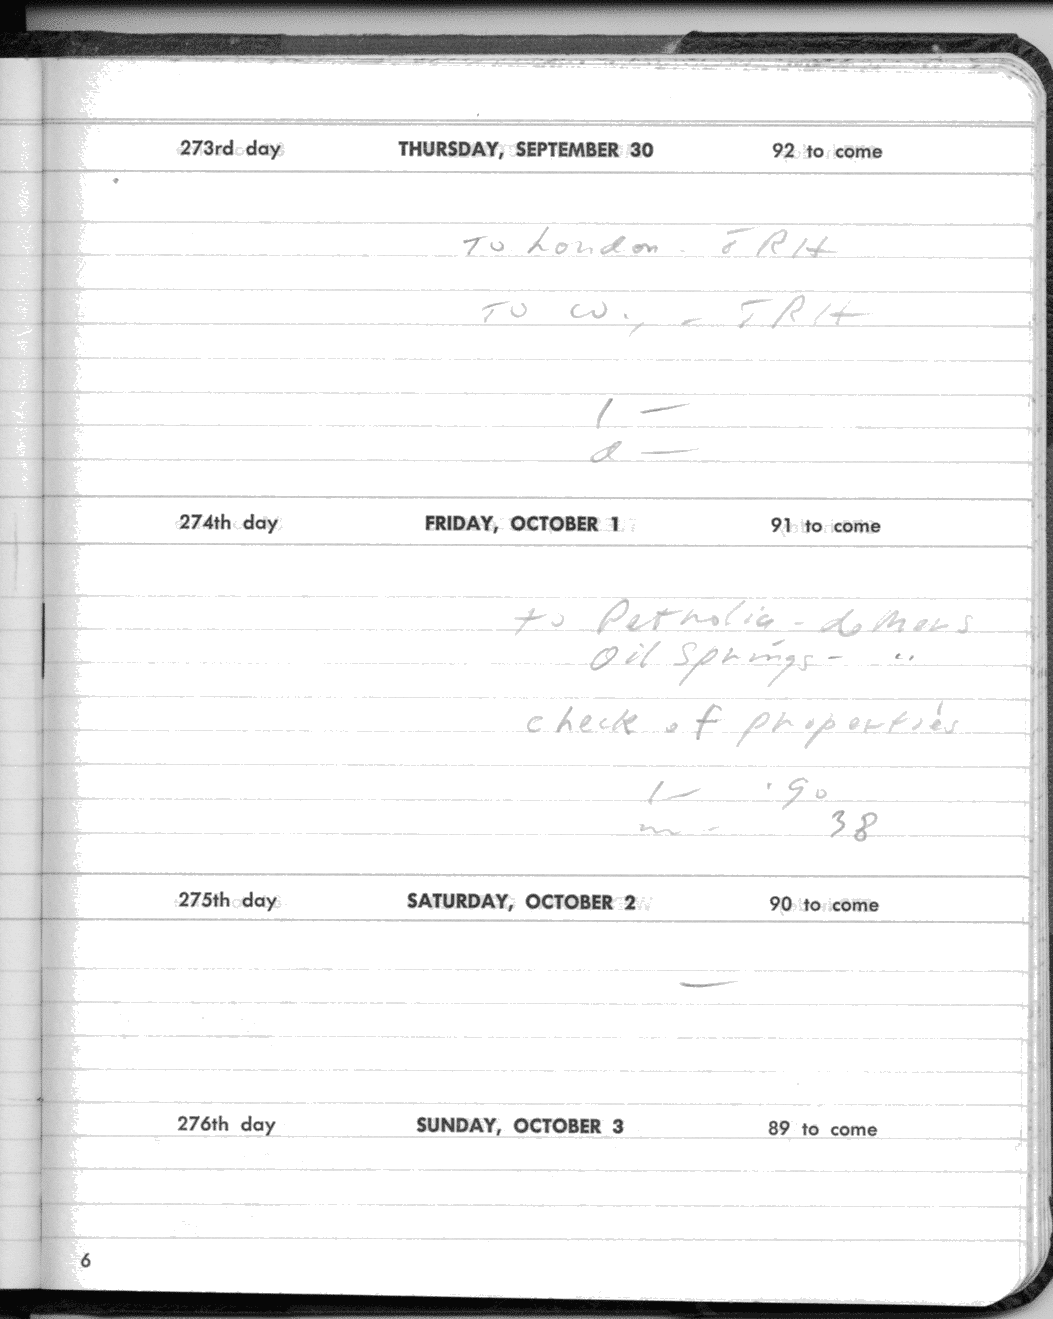 273rd day THURSDAY, SEPTEMBER 30 92 to come
To London - TRH
To W., - TRH
l —
d —
274th day FRIDAY, OCTOBER 1 91 to come
to Petrolia -
Oil Springs - "
check of properties
l — .90
m - 38
275th day SATURDAY, OCTOBER 2 90 to come
—
276th day SUNDAY, OCTOBER 3 89 to come
6